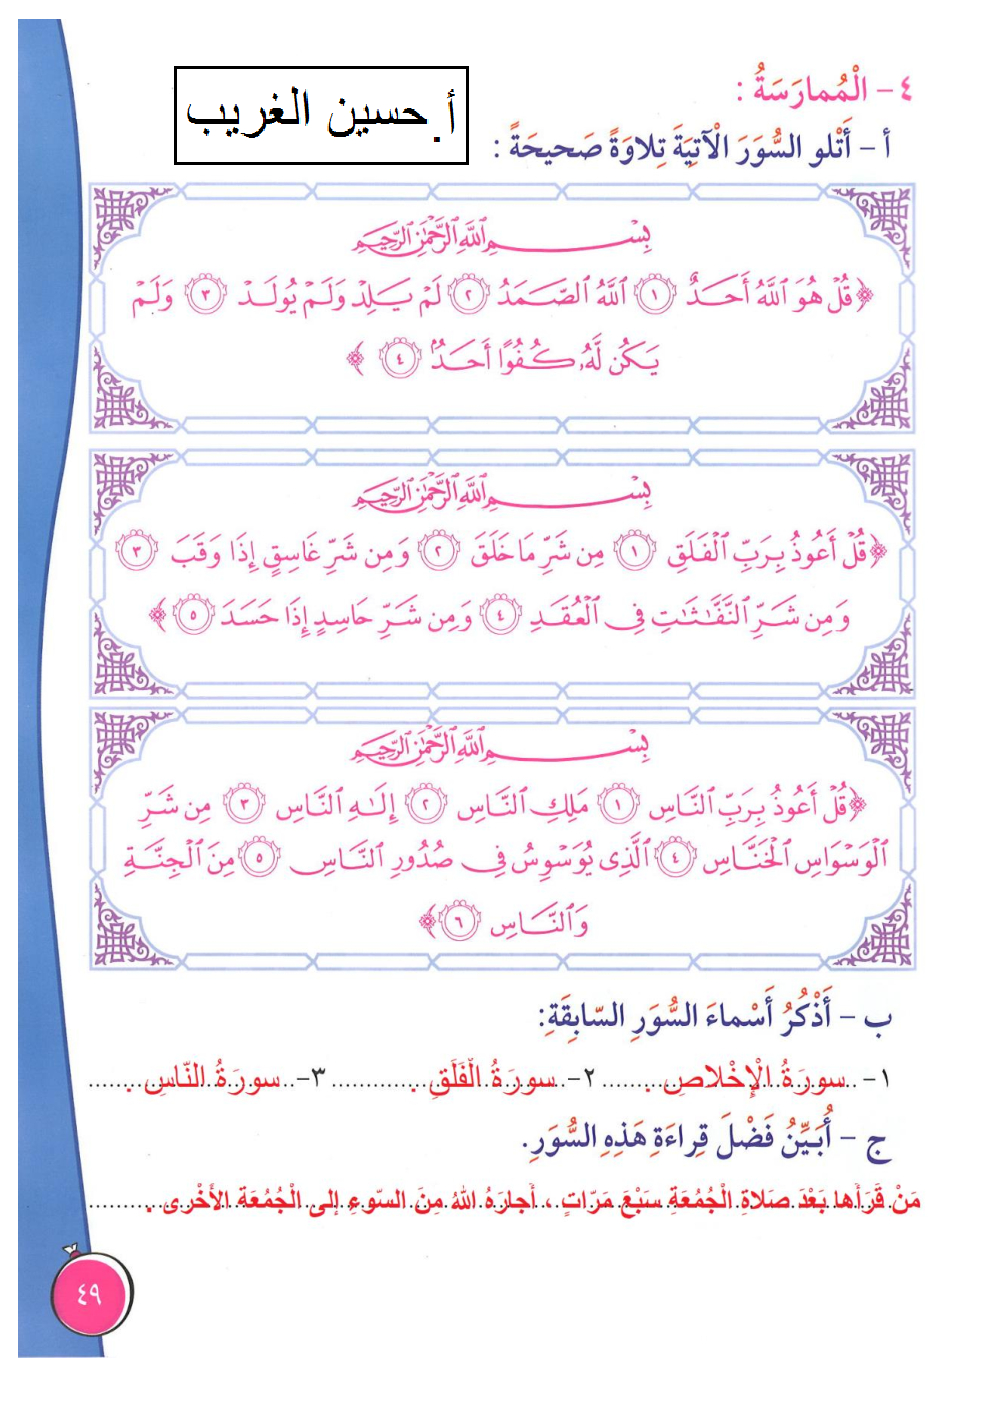 ٤ - الْمُمارَسَةُ :
أ. حسين الغريب
أ - أَتْلو السُّوَرَ الْآتِيَةَ تِلاوَةً صَحيحَةً :
بِسْمِ ٱللَّهِ ٱلرَّحْمَٰنِ ٱلرَّحِيمِ
﴿قُلْ هُوَ ٱللَّهُ أَحَدٌ ١ ٱللَّهُ ٱلصَّمَدُ ٢ لَمْ يَلِدْ وَلَمْ يُولَدْ ٣ وَلَمْ
يَكُن لَّهُۥ كُفُوًا أَحَدٌۢ ٤ ﴾
بِسْمِ ٱللَّهِ ٱلرَّحْمَٰنِ ٱلرَّحِيمِ
﴿قُلْ أَعُوذُ بِرَبِّ ٱلْفَلَقِ ١ مِن شَرِّ مَا خَلَقَ ٢ وَمِن شَرِّ غَاسِقٍ إِذَا وَقَبَ ٣
وَمِن شَرِّ ٱلنَّفَّٰثَٰتِ فِى ٱلْعُقَدِ ٤ وَمِن شَرِّ حَاسِدٍ إِذَا حَسَدَ ٥ ﴾
بِسْمِ ٱللَّهِ ٱلرَّحْمَٰنِ ٱلرَّحِيمِ
﴿قُلْ أَعُوذُ بِرَبِّ ٱلنَّاسِ ١ مَلِكِ ٱلنَّاسِ ٢ إِلَٰهِ ٱلنَّاسِ ٣ مِن شَرِّ
ٱلْوَسْوَاسِ ٱلْخَنَّاسِ ٤ ٱلَّذِى يُوَسْوِسُ فِى صُدُورِ ٱلنَّاسِ ٥ مِنَ ٱلْجِنَّةِ
وَٱلنَّاسِ ٦ ﴾
ب - أَذْكُرُ أَسْماءَ السُّوَرِ السّابِقَةِ:
١- سورَةُ الْإِخْلاصِ . ٢- سورَةُ الْفَلَقِ . ٣- سورَةُ النّاسِ .
ج - أُبَيِّنُ فَضْلَ قِراءَةِ هَذِهِ السُّوَرِ.
مَنْ قَرَأَها بَعْدَ صَلاةِ الْجُمُعَةِ سَبْعَ مَرّاتٍ ، أَجارَهُ اللهُ مِنَ السّوءِ إلى الْجُمُعَة الأُخْرى .
٤٩